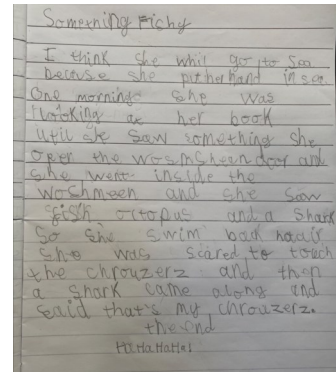 Something Fishy
I think she whil go to Sea
because she put her hand in sea
One morning she was
looking at her book
util she saw something she
open the woshmsheen door and
she went inside the
woshmeen and she saw
fish octopus and a shark
So she swim bad
she was scared to touch
the chrouzerz and then
a shark came along and
said that's my chrouzerz.
the end
HaHaHaHa!